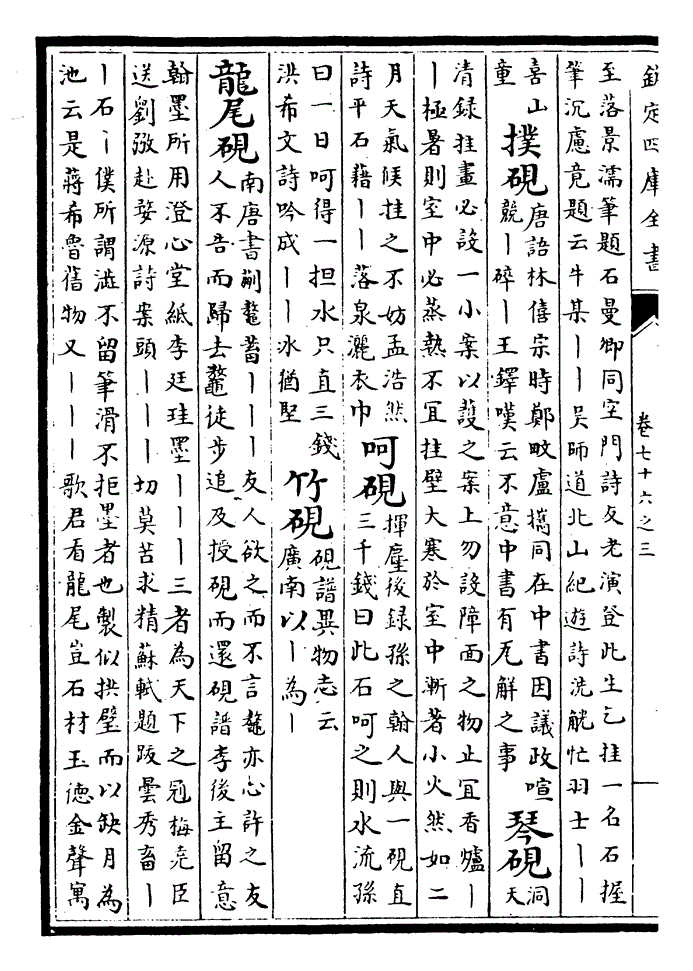 欽定四庫全書 卷七十六之三
至落景濡筆題石曼卿同空門詩友老演登此生乞挂一名石握
筆沉慮竟題云牛某丨丨吳師道北山紀遊詩洗觥忙羽士丨丨
喜山
童
撲硯
唐語林僖宗時鄭畋盧攜同在中書因議政喧
競丨碎丨王鐸嘆云不意中書有瓦解之事
琴硯
洞
天
清録挂畫必設一小案以䕶之案上勿設障面之物止宜香爐丨
丨極暑則室中必蒸熱不宜挂壁大寒於室中漸著小火然如二
月天氣候挂之不妨孟浩然
詩平石藉丨丨落泉灑衣巾
呵硯
揮麈後録孫之翰人與一硯直
三千錢曰此石呵之則水流孫
曰一日呵得一担水只直三錢
洪希文詩吟成丨丨氷猶堅
竹硯
硯譜異物志云
廣南以丨為丨
龍尾硯
南唐書蒯鼇蓄丨丨丨友人欲之而不言鼇亦心許之友
人不告而歸去鼇徒步追及授硯而還硯譜李後主留意
翰墨所用澄心堂紙李廷珪墨丨丨丨三者為天下之冠梅堯臣
送劉弢赴婺源詩案頭丨丨丨切莫苦求精蘇軾題跋曇秀畜丨
丨石丨僕所謂澁不留筆滑不拒墨者也製似拱璧而以缺月為
池云是蔣希魯舊物又丨丨丨歌君看龍尾豈石材玉德金聲寓